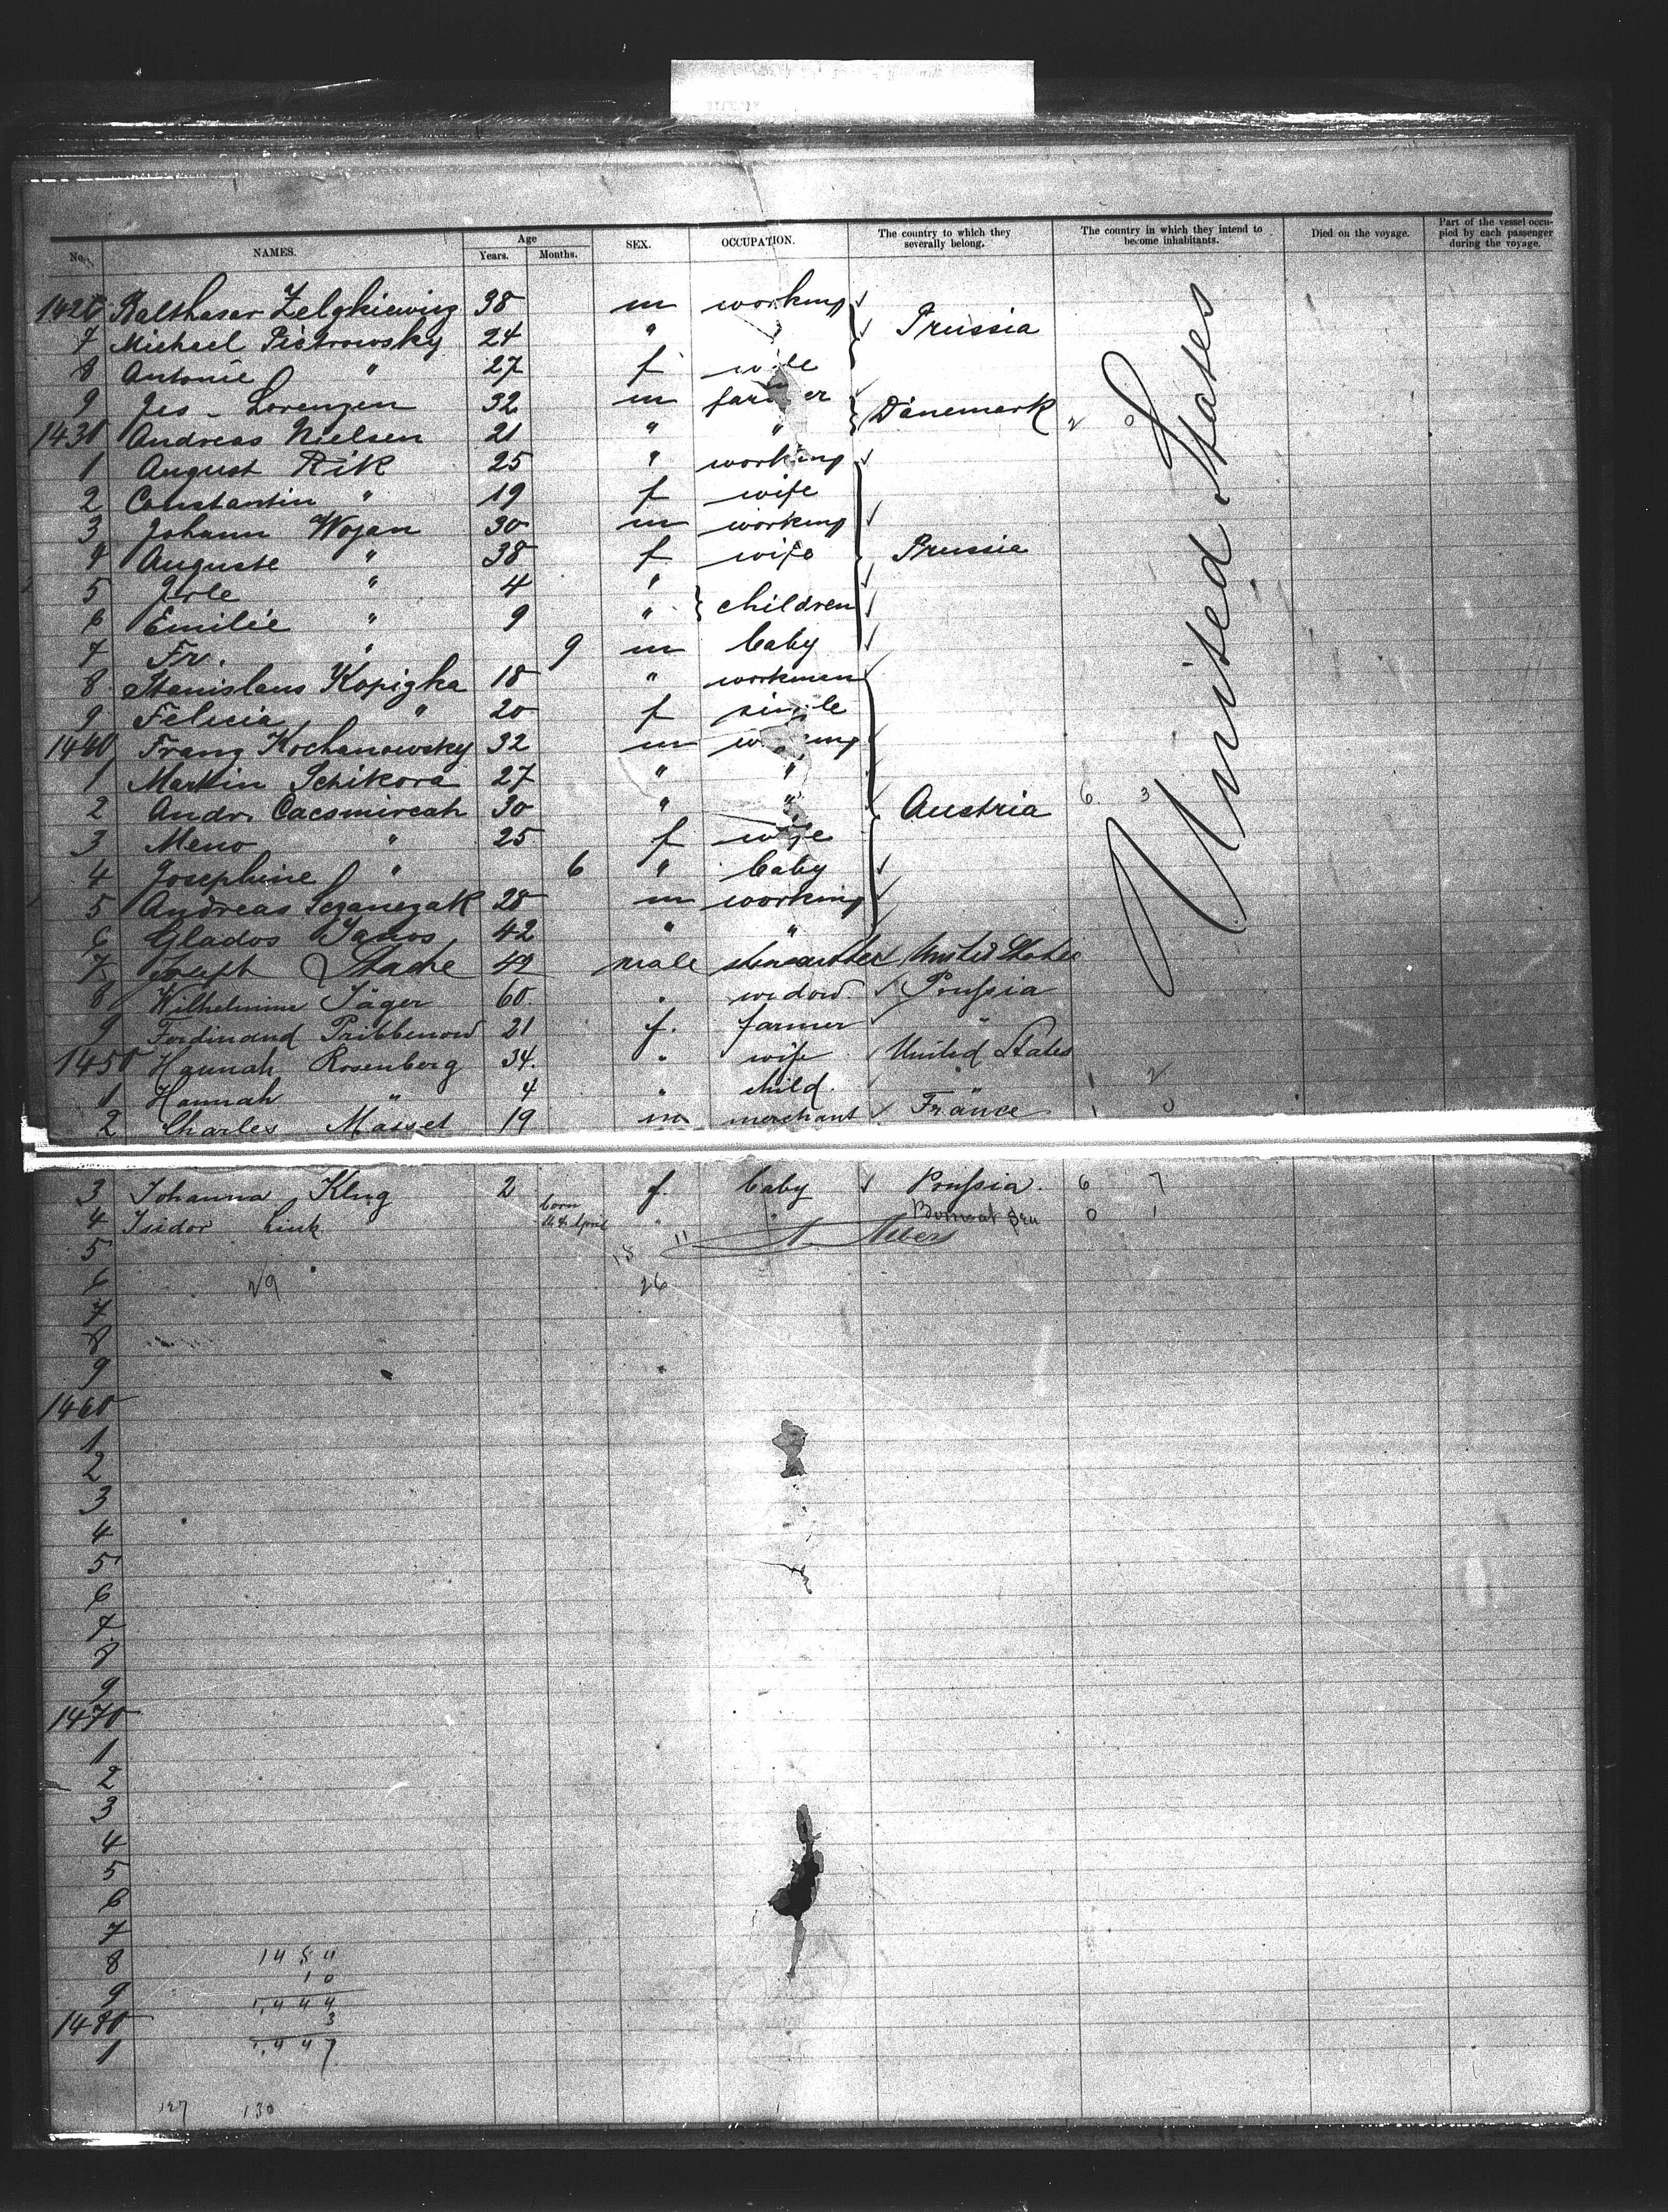 No. NAMES. Age Years. Months. SEX. OCCUPATION. The country to which they severally belong. The country in which they intend to become inhabitants. Died on the voyage. Part of the vessel occupied by each passenger during the voyage.
1426 Balthasar Zelgkiewicz 38 m working Prussia
7 Michael Pietrowsky 24 " "
8 Antonie " 27 f wife
9 Jes - Lorenzen 32 m farmer Dänemark
1430 Andreas Nielsen 21 " "
1 August Rik 25 " working
2 Constantin " 19 f wife
3 Johann Wojan 30 m working
4 Auguste " 38 f wife Prussia
5 " 4 "
6 Emilie " 9 " children
7 Fr. " 9 m baby
8 Stanislaus Kopizka 18 " workmen
9 Felicia " 20 f single
1440 Franz Kochanowsky 32 m working
1 Martin Schikora 27 " "
2 Andr. Cacsmircah 30 " " Austria 6 3
3 Meno " 25 f wife
4 Josephine " 6 " baby
5 Andreas Sczanezak 28 m working
6 Glados Janos 42 " "
7 Joseph Stache 49 male United States
8 Wilhelmine Jäger 60 " widow Prussia
9 Ferdinand Pribbenow 21 f. farmer "
1450 Hannah Rosenberg 34 " wife United States
1 Hannah " 4 " child " 1 2
2 Charles Masset 19 m merchant France 1 0
United States
3 Johanna Klug 2 f. baby Prussia 6 7
4 Isidor Link born 14th April " " 0 1
5 13 11
6 29 26
7
8
9
1460
1
2
3
4
5
6
7
8
9
1470
1
2
3
4
5
6
7
8 1454
10
9 1,444
1480 3
1 1,447
127 130